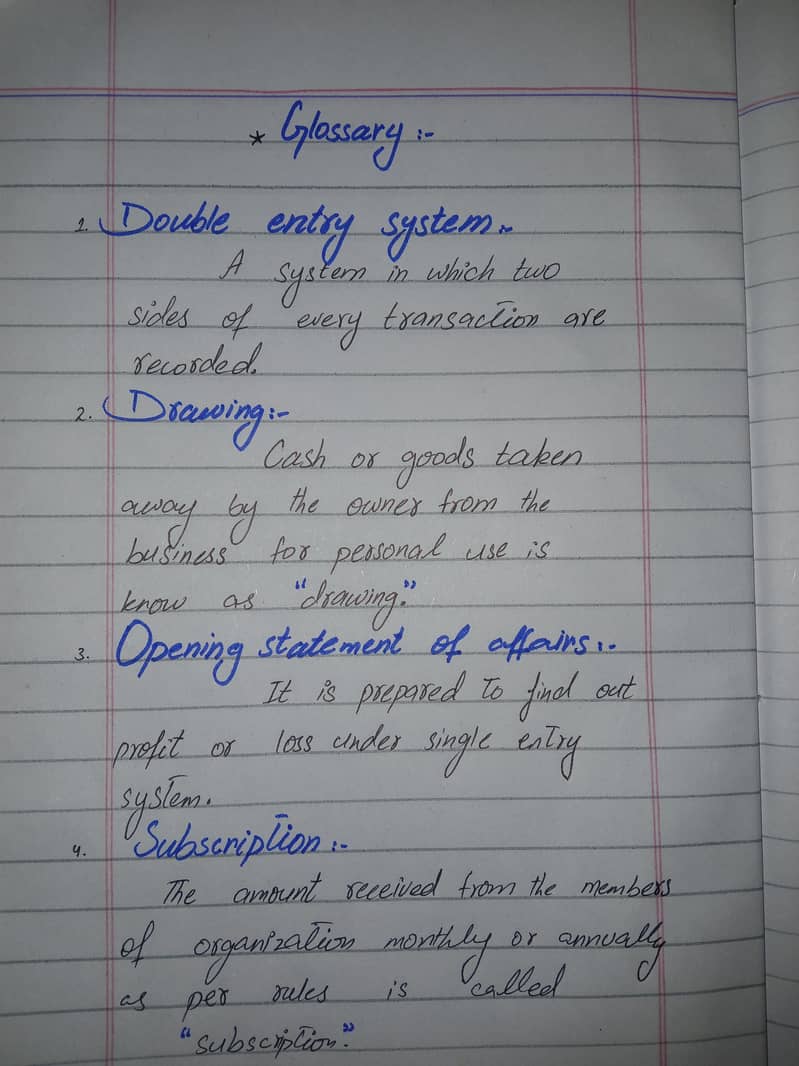 * Glossary :-
1. Double entry system :-
A system in which two
sides of every transaction are
recorded.
2. Drawing :-
Cash or goods taken
away by the owner from the
business for personal use is
know as "drawing."
3. Opening statement of affairs :-
It is prepared to find out
profit or loss under single entry
system.
4. Subscription :-
The amount received from the members
of organization monthly or annually
as per rules is called
"subscription."